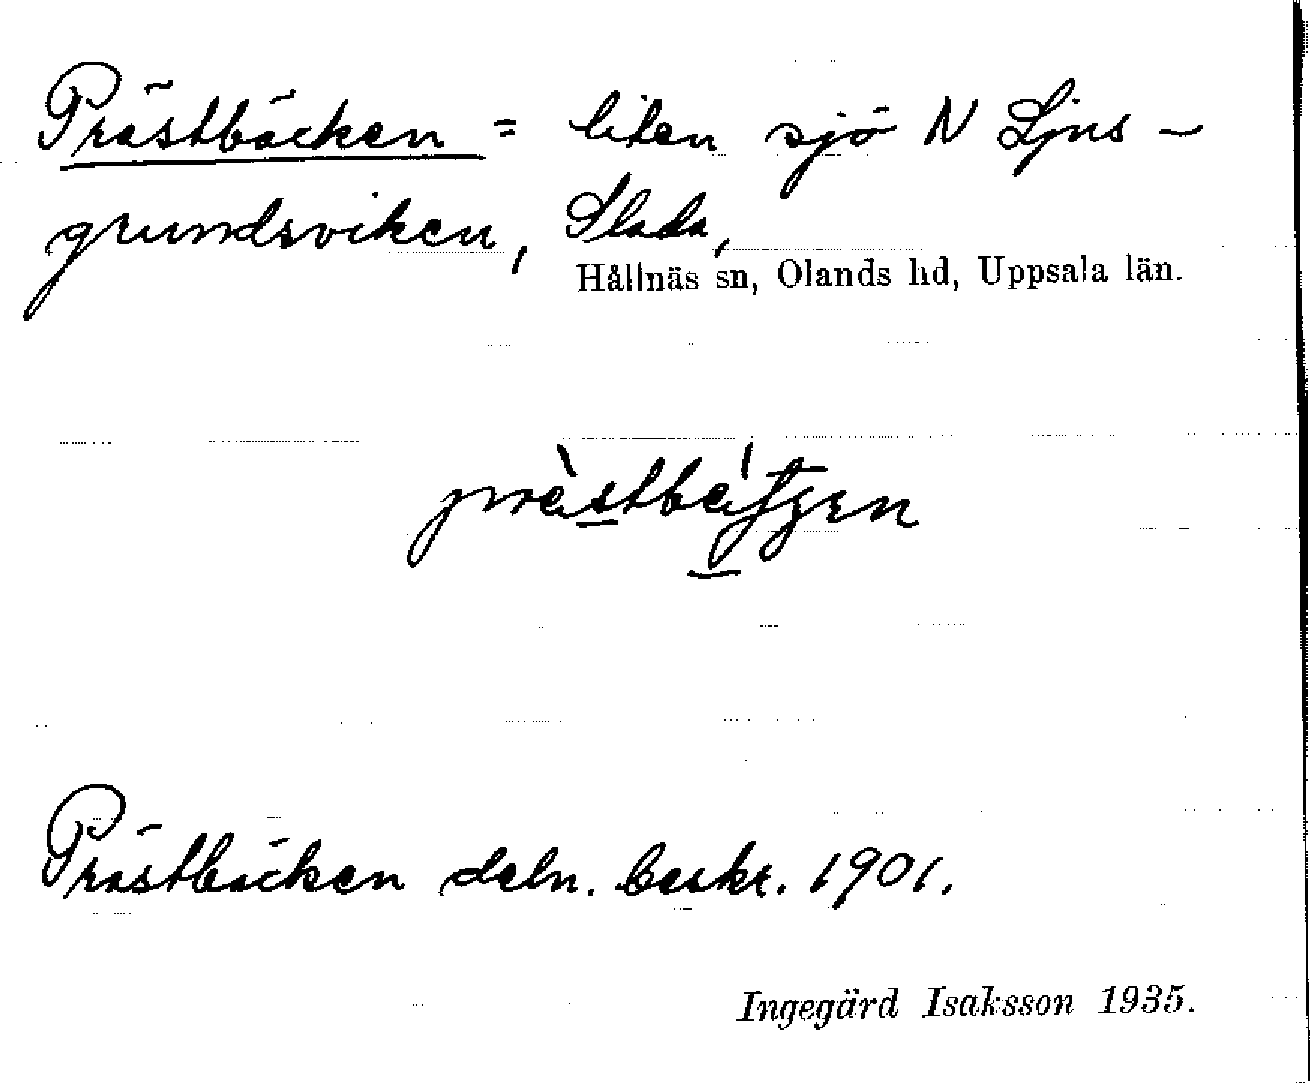 Prästbäcken = liten sjö N Ljus-
grundsviken, Slada,
Hållnäs sn, Olands hd, Uppsala län.
Prästbäcken deln. beskr. 1901.
Ingegärd Isaksson 1935.